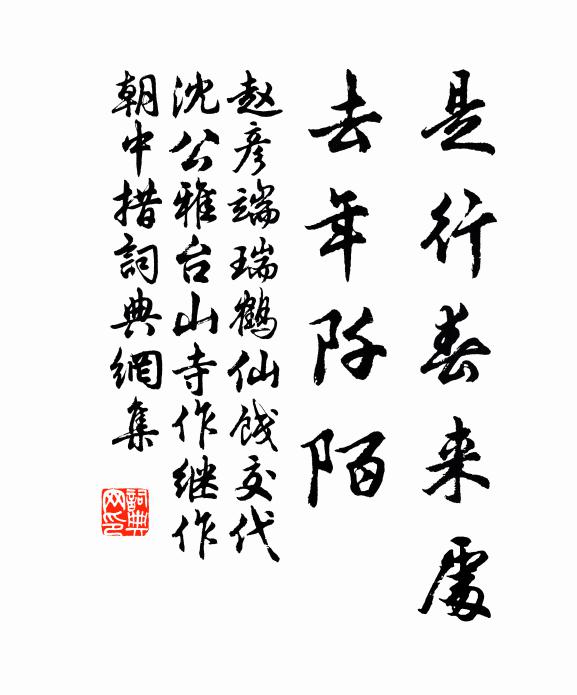 是行春来處
去年阡陌
赵彦端瑞鹤仙饯交代
沈公雅台山寺作继作
朝中措詞典網集
詞典網印